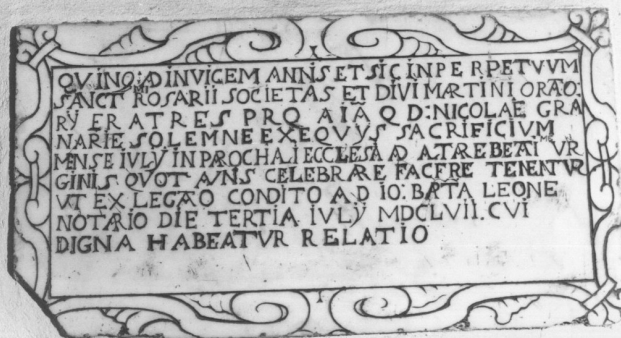 QVINQ: AD INVICEM ANNIS ET SIC IN PERPETVVM
SANCTMI ROSARII SOCIETAS ET DIVI MARTINI ORAO.
RŸ FRATRES PRO AIA Q D: NICOLAE GRA
NARIE SOLEMNE EXEQVYS SACRIFICIVM
MENSE IVLŸ IN PAROCHALI ECCLESIA AD ALTARE BEATI VIR
GINIS QVOT ANNS CELEBRARE FACERE TENENTVR
VT EX LEGAO CONDITO AD IO: BAPTA LEONE
NOTARIO DIE TERTIA IVLŸ MDCLVII. CVI
DIGNA HABEATVR RELATIO